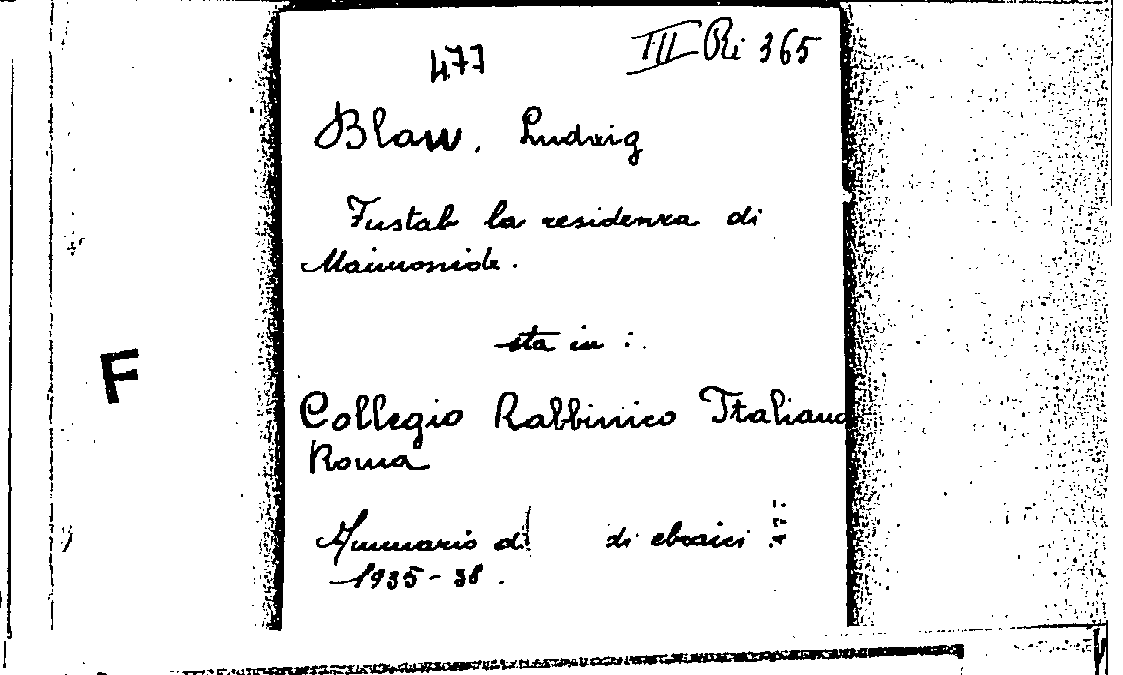 477 III Ri 365
Blau, Ludwig
Fustat la residenza di
Maimonide.
sta in :
Collegio Rabbinico Italiano
Roma
Annuario di di ebraici 477
1935-38.
F